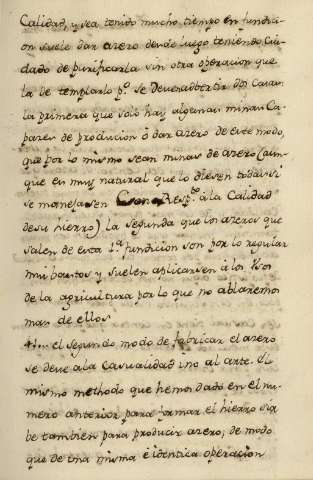 Calidad, y sea tenido mucho tiempo en fundici-
on suele dar azero desde luego teniendo Cui-
dado de purificarla sin otra operacion que
la de templarlo p.º se deve advertir dos Casas.
la primera que solo hay algunas minas Ca-
pares de producion ô dar azero de este modo,
que por lo mismo sean minas de azero (aun-
que es muy natural que lo diesen todas si
se manejasen Con Resp.to â la Calidad
de su hierro) la segunda que los azeros que
salen de esta 1.ª fundicion son por lo regular
mui bastos y suelen aplicarsen â los Usos
de la agricultura por lo que no ablaremos
mas de ellos
4!... el segundo modo de fabricar el azero
se deve a la Casualidad i no al arte. El
mismo methodo que hemos dado en el nu-
mero anterior para formar el hierro sir
be tambien para producir azero; de modo
que de una misma e identica operacion